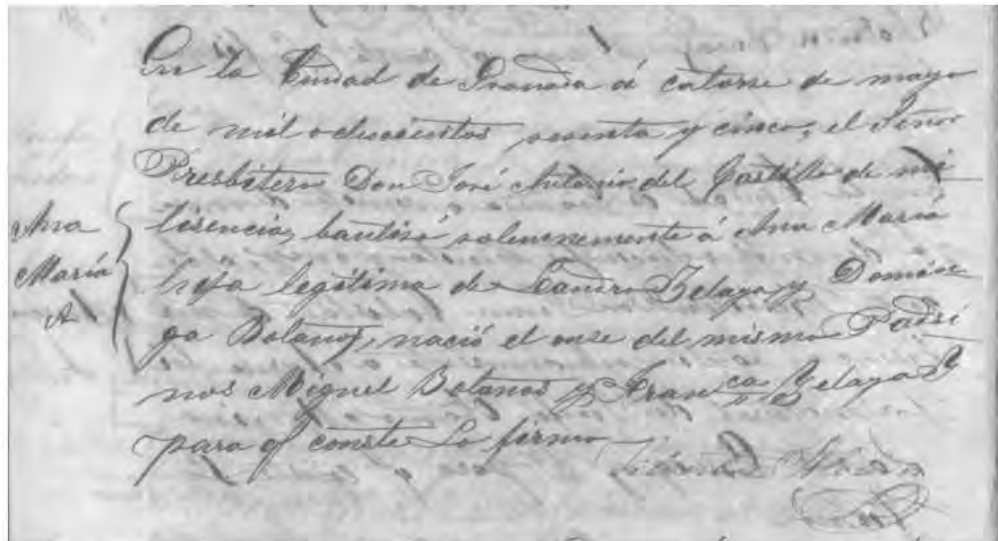 En la Ciudad de Granada á catorse de mayo
de mil ochocientos sesenta y cinco, el Señor
Presbitero Don José Antonio del Castillo de mi
Ana lisencia, bautisó solemnemente á Ana María
María hija legítima de Zelaya y Domin
A ga Bolaños, nació el onse del mismo Padri
nos Miguel Bolanos y Fran.ca Zelaya Y
para q conste Lo firmo